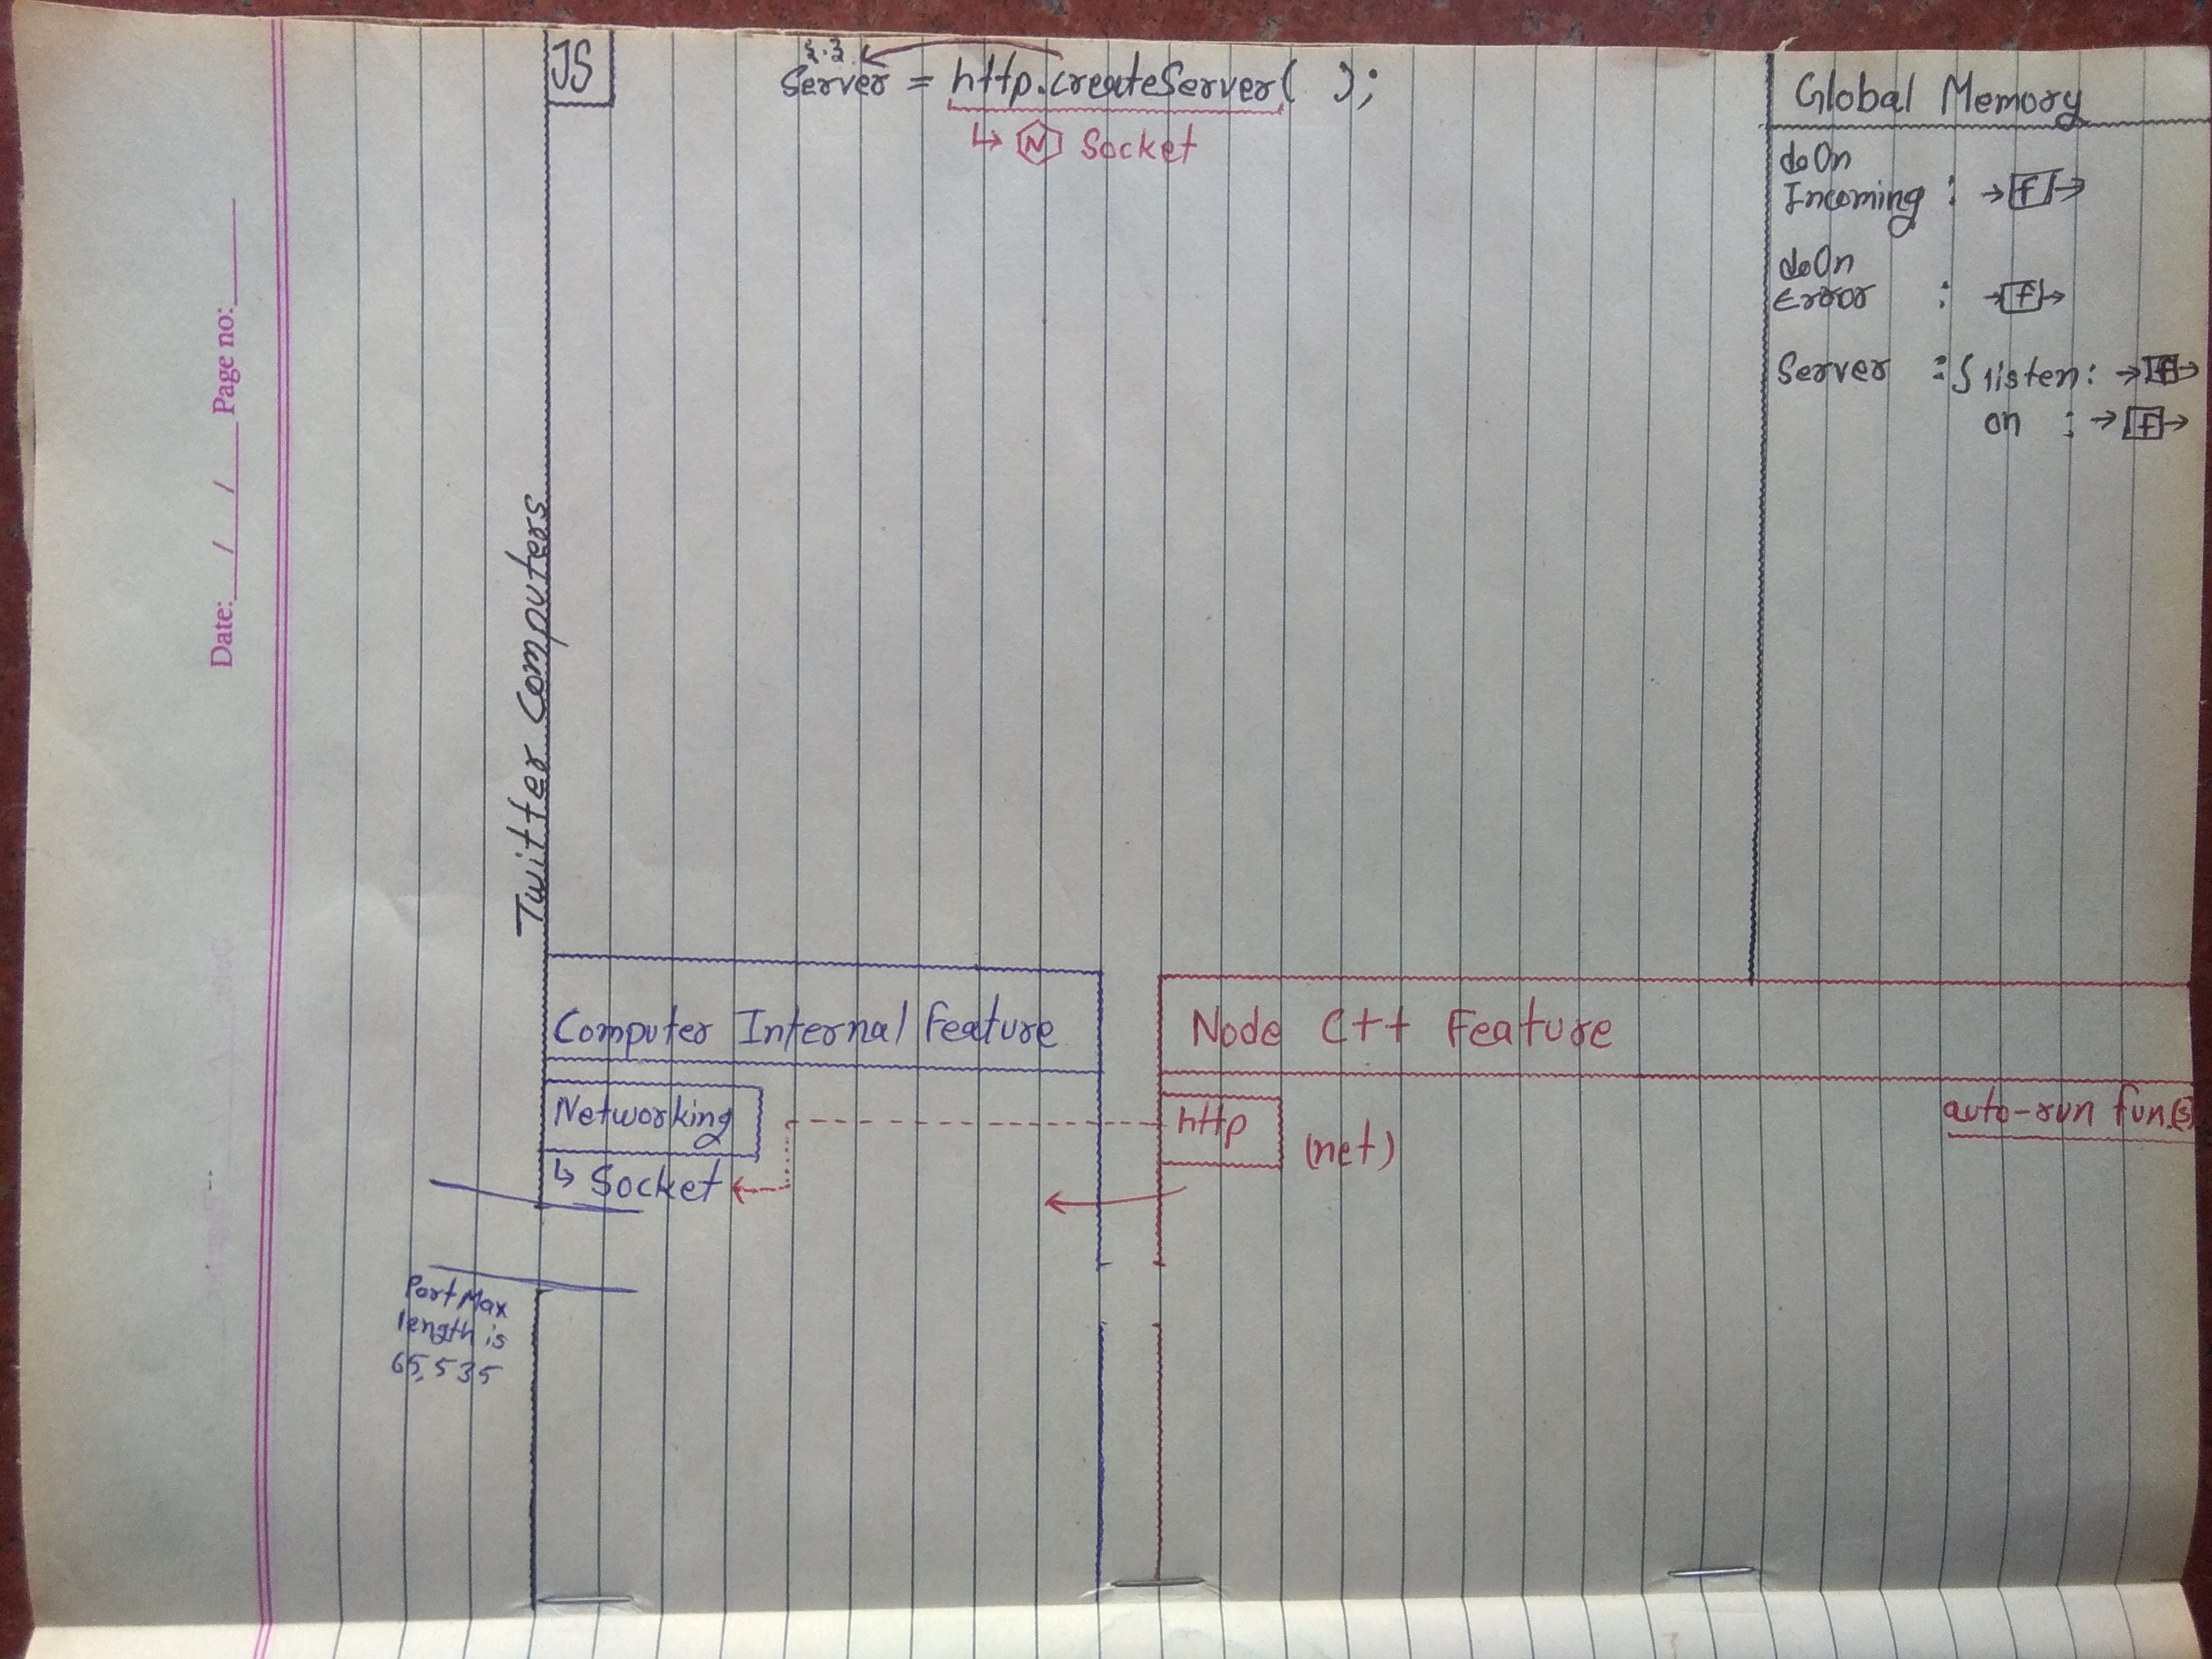 JS
{.}
Server = http.createServer( );
↳ N Socket
Global Memory
doOn
Incoming : →[f]→
doOn
Error : →[f]→
Server : { listen: →[f]→
on : →[f]→
Date: / / Page no:
Twitter Computers
Computer Internal Feature
Networking
↳ Socket
Port Max
length is
65,535
Node C++ Feature
http (net)
auto-run fun.(s)